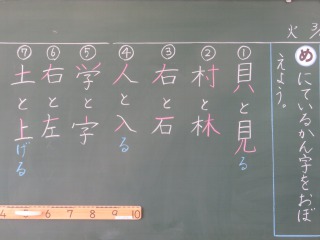 火
めにているかん字をおぼ
えよう。
①貝と見る
②村と林
③右と石
④人と入る
⑤学と字
⑥右と左
⑦土と上げる
4 6 7 8 9 10